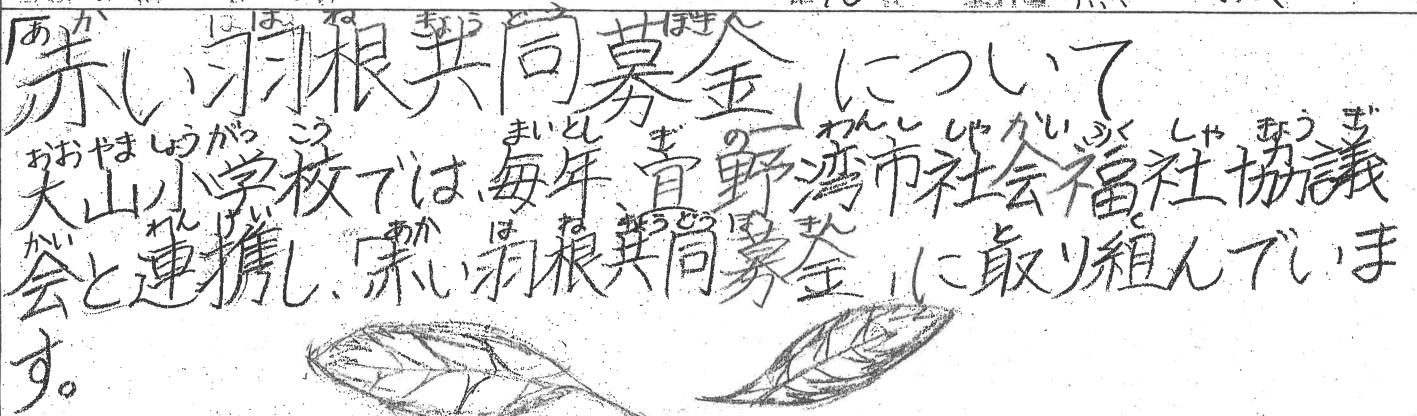 「赤い羽根共同募金」について
大山小学校では、毎年、宜野湾市社会福祉協議
会と連携し、「赤い羽根共同募金」に取り組んでいま
す。